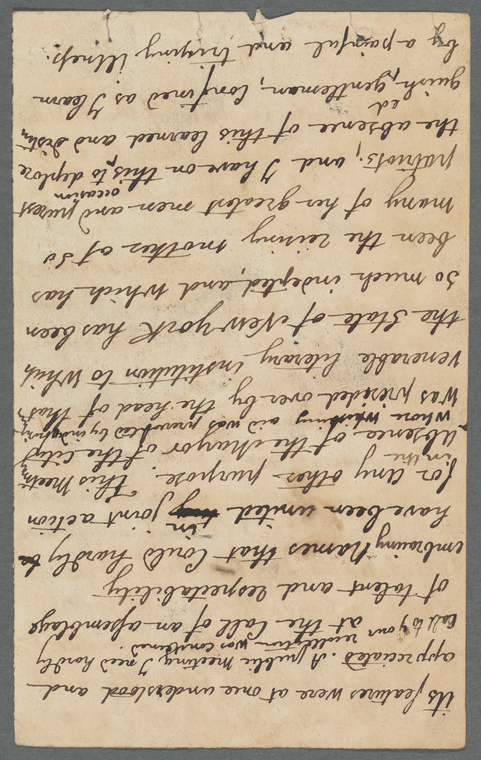 its features were at once understood and
appreciated. A public meeting, I need hardly
call to your recollection was convened.
at the call of an assemblage
of talent and respectability
embracing names that could hardly
have been united in joint action
for any other purpose. This meeting
in the
absence of the mayor of the city
whose aid was prevented by
was presided over by the head of that
venerable literary institution to which
the State of New York has been
so much indebted, and which has
been the mother of so
many of her greatest men and purest
occasion
patriots; and I have on this, to deplore
the absence of this learned and distin
ed
guish, gentleman, confined as I learn
by a painful and trying illness.